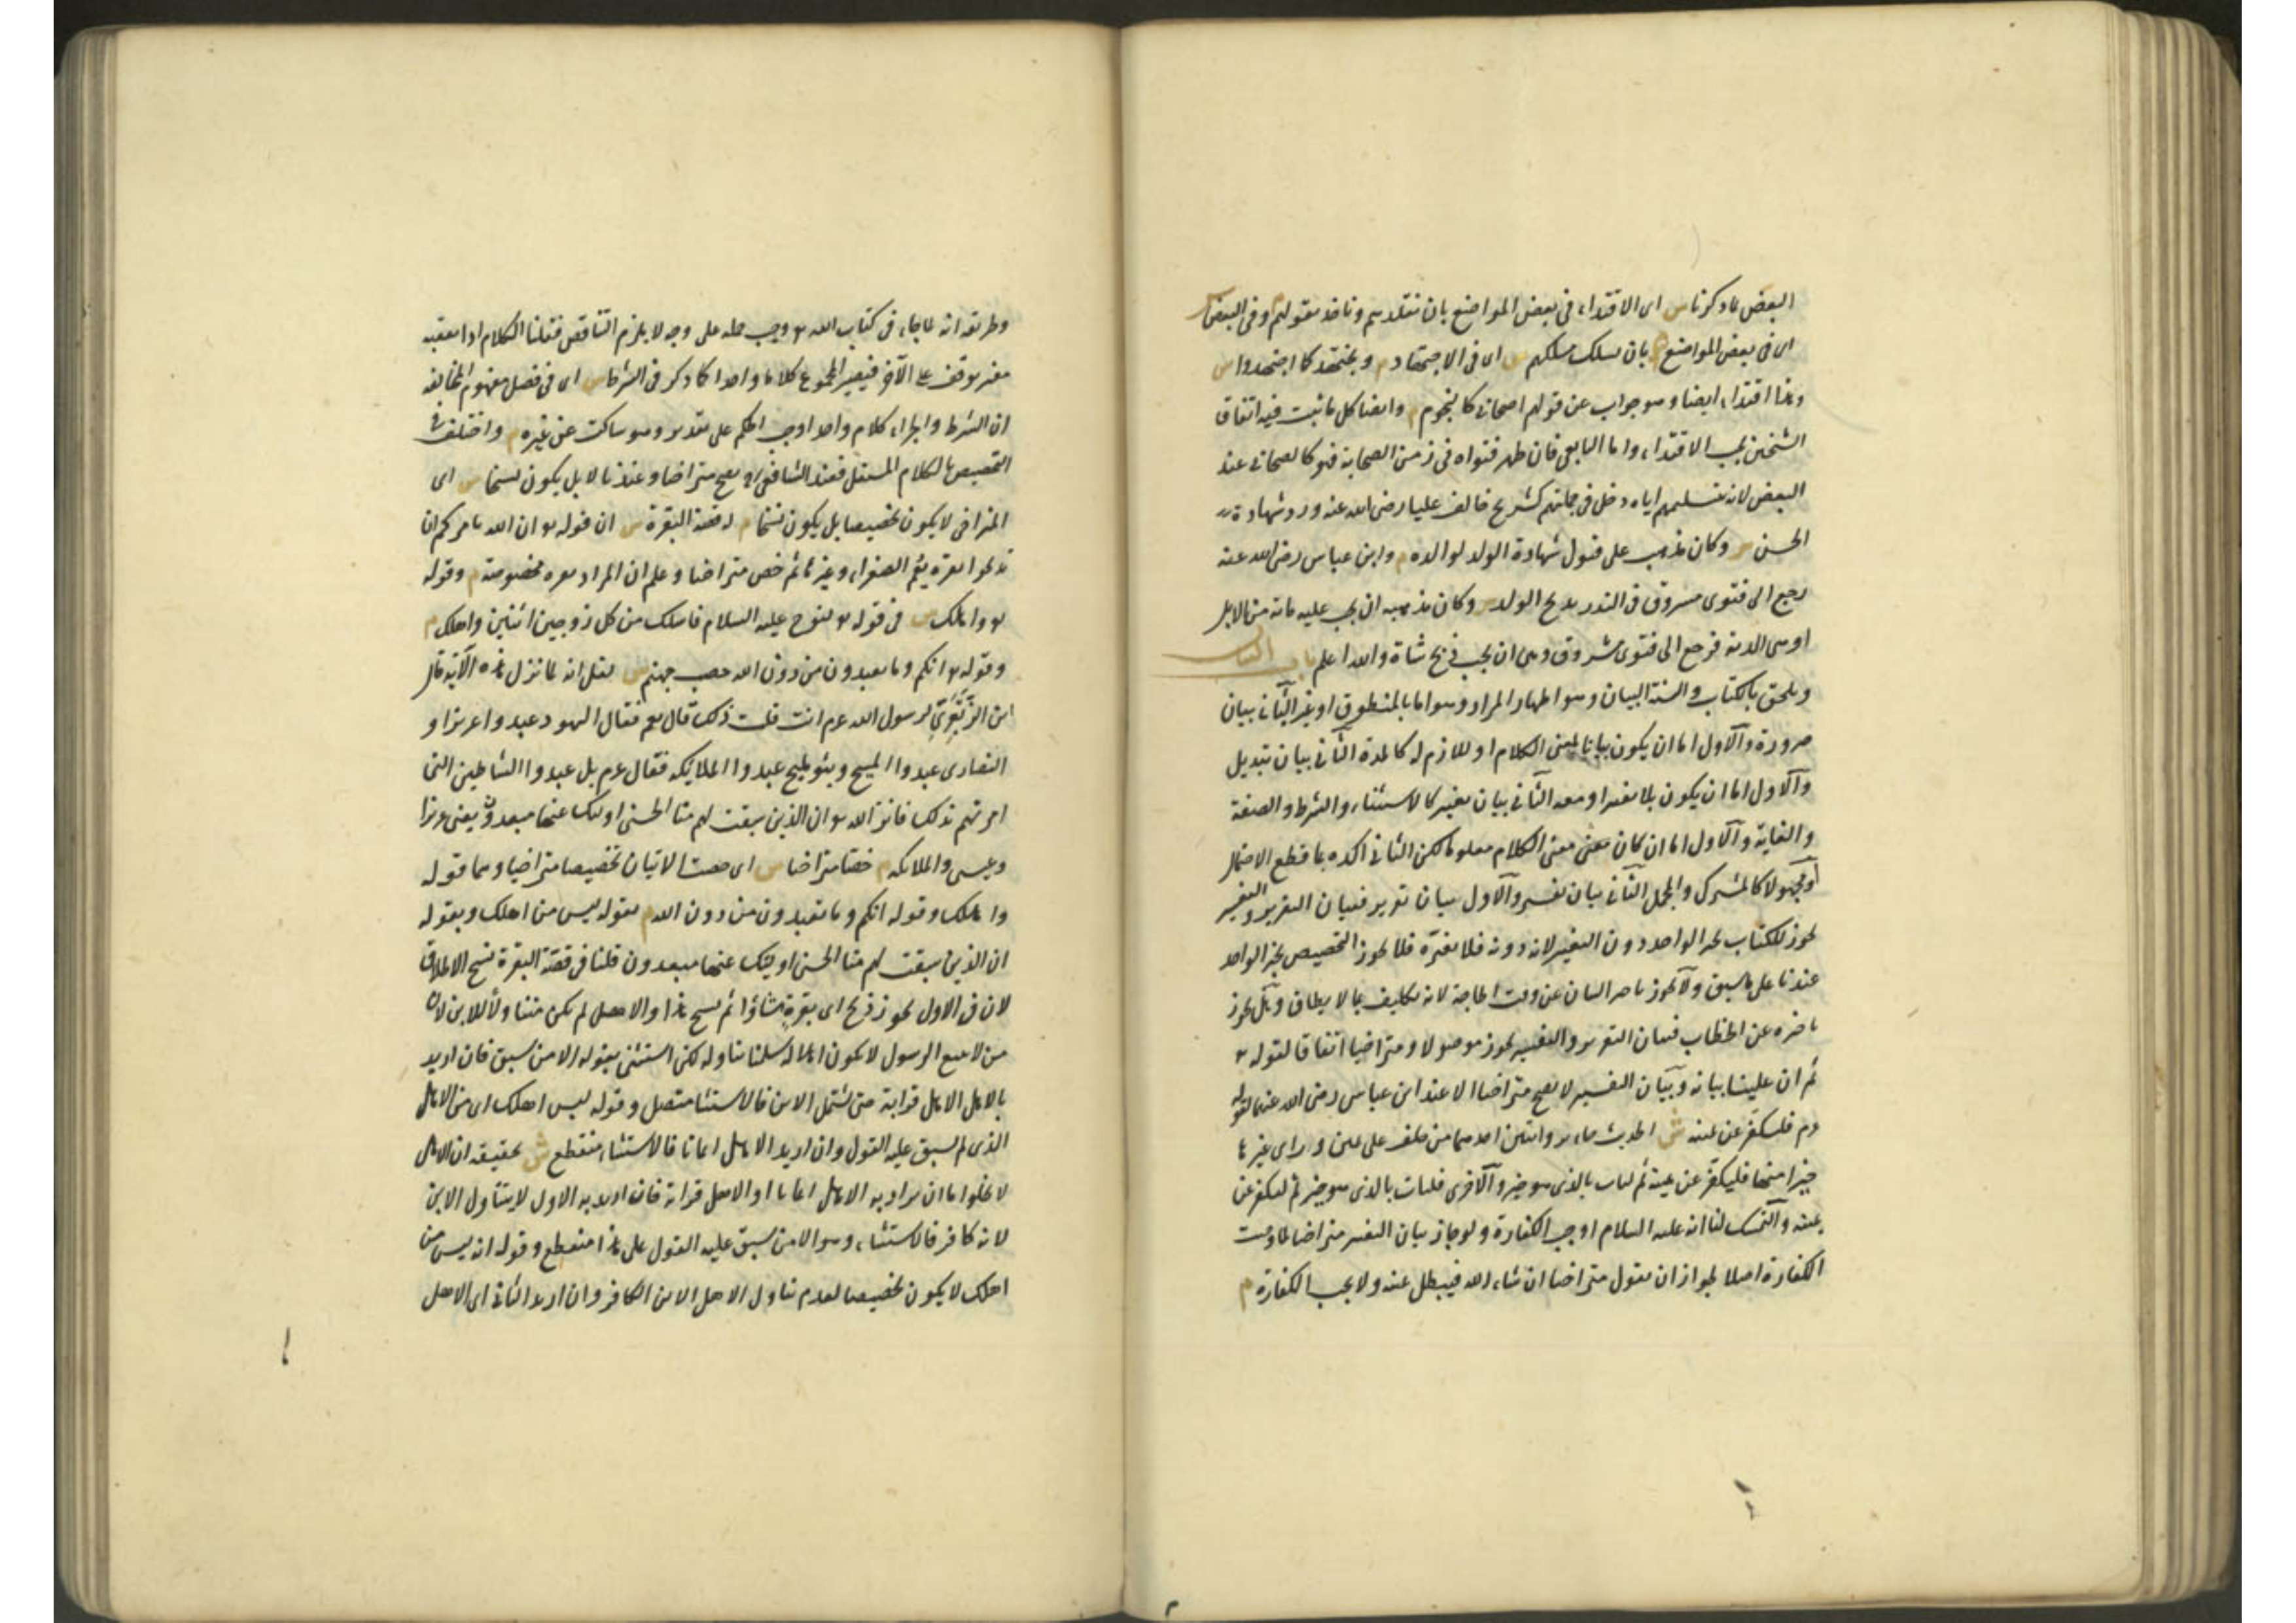 البعض لما ذكرنا س اى الاقتداء فى بعض المواضع بان نقلدهم وناخذ بقولهم م وفى البعض س
اى فى بعض المواضع م بان نسلك مسلكهم س اى فى الاجتهاد م ونجتهد كما اجتهدوا س
وهذا اقتداء ايضا وهو جواب عن قوله اصحابى كالنجوم م وايضا كل ما ثبت فيه اتفاق
الشيخين يجب الاقتداء واما التابعى فان ظهر فتواه فى زمن الصحابة فهو كالصحابى عند
البعض لانه بتسليمهم اياه دخل فى جملتهم كشريح خالف عليا رضى الله عنه ورد شهادة
الحسن س وكان مذهب على قبول شهادة الولد لوالده م وابن عباس رضى الله عنه
رجع الى فتوى مسروق فى النذر بذبح الولد س وكان مذهبه ان يجب عليه مائة من الابل
اذ هى الدية فرجع الى فتوى مسروق وهى ان يجب ذبح شاة والله اعلم باب البيان
ويلحق بالكتاب والسنة البيان وهو اظهار المراد وهو اما بالمنطوق او غيره الثانى بيان
ضرورة والاول اما ان يكون بيانا لمعنى الكلام او للازم له كالمدة الثانى بيان تبديل
والاول اما ان يكون بلا تغيير او معه الثانى بيان تغيير كالاستثناء والشرط والصفة
والغاية والاول اما ان كان معنى الكلام معلوما لكن الثانى اكده بما قطع الاحتمال
او مجهولا كالمشترك والمجمل الثانى بيان تفسير والاول بيان تقرير فبيان التقرير والتفسير
يجوز للكتاب بخبر الواحد دون التغيير لانه دونه فلا يغيره فلا يجوز التخصيص بخبر الواحد
عندنا على ما سبق ولا يجوز تاخير البيان عن وقت الحاجة لانه تكليف بما لا يطاق وهل يجوز
تاخيره عن الخطاب فبيان التقرير والتفسير يجوز موصولا ومتراخيا اتفاقا لقوله تع
ثم ان علينا بيانه وبيان التغيير لا يصح متراخيا الا عند ابن عباس رضى الله عنهما لقوله
عم فليكفر عن يمينه ش الحديث جاء بروايتين احدهما من حلف على يمين وراى غيرها
خيرا منها فليكفر عن يمينه ثم ليات بالذى هو خير والاخرى فليات بالذى هو خير ثم ليكفر عن
يمينه والتمسك لنا انه عليه السلام اوجب الكفارة ولو جاز بيان التغيير متراخيا لما وجبت
الكفارة اصلا لجواز ان يقول متراخيا ان شاء الله فيبطل يمينه ولا يجب الكفارة م
وطريقه انه لما جاء فى كتاب الله تع وجب حمله على وجه لا يلزم التناقض فقلنا الكلام اذا تعقبه
مغير توقف على الآخر فيصير المجموع كلاما واحدا كما ذكر فى الشرط س اى فى فصل مفهوم المخالفة
ان الشرط والجزاء كلام واحد اوجب الحكم على تقدير وهو ساكت عن غيره م واختلف فى
التخصيص بالكلام المستقل فعند الشافعى رح يصح متراخيا وعندنا لا بل يكون نسخا س اى
المتراخى لا يكون تخصيصا بل يكون نسخا م له قصة البقرة س ان قوله تع ان الله يامركم ان
تذبحوا بقرة يعم الصفراء وغيرها ثم خص متراخيا وعلم ان المراد بقرة مخصوصة م وقوله
تع واهلك س فى قوله تع لنوح عليه السلام فاسلك من كل زوجين اثنين واهلك م
وقوله تع انكم وما تعبدون من دون الله حصب جهنم س نقل انه لما نزل هذه الآية قال
ابن الزبعرى لرسول الله عم انت قلت ذلك قال نعم فقال اليهود عبدوا عزيرا و
النصارى عبدوا المسيح وبنو مليح عبدوا الملايكة فقال عم بل عبدوا الشياطين التى
امرتهم بذلك فانزل الله تع ان الذين سبقت لهم منا الحسنى اولئك عنها مبعدون يعنى عزيرا
وعيسى والملائكة م خصتا متراخيا س اى خصت الايتان تخصيصا متراخيا وهما قوله
واهلك وقوله انكم وما تعبدون من دون الله م بقوله ليس من اهلك وبقوله
ان الذين سبقت لهم منا الحسنى اولئك عنها مبعدون قلنا فى قصة البقرة نسخ الاطلاق
لان فى الاول يجوز ذبح اى بقرة شاؤا ثم نسخ هذا والاهل لم يكن متناولا للابن لان
من لا يتبع الرسول لا يكون اهلا له سلمنا تناوله لكن استثنى بقوله الا من سبق فان اريد
بالاهل الاهل قرابة حتى يشتمل الابن فالاستثنا متصل وقوله ليس من اهلك اى من الاهل
الذى لم يسبق عليه القول وان اريد الاهل ايمانا فالاستثناء منقطع ش تحقيقه ان الاهل
لا يخلوا اما ان يراد به الاهل ايمانا او الاهل قرابة فان اريد به الاول لا يتناول الابن
لانه كافر فالاستثناء وهو الا من سبق عليه القول على هذا منقطع وقوله انه ليس من
اهلك لا يكون تخصيصا لعدم تناول الاهل الابن الكافر وان اريد الثانى اى الاهل